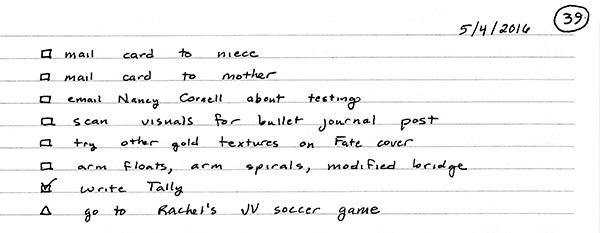 39
5/4/2016
mail card to niece
mail card to mother
email Nancy Cornell about testing
scan visuals for bullet journal post
try other gold textures on Fate cover
arm floats, arm spirals, modified bridge
write Tally
go to Rachel's JV soccer game